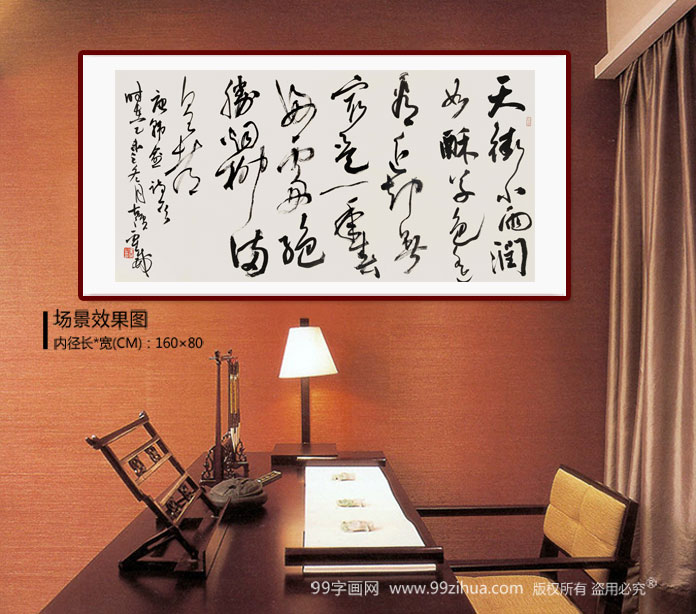 天街小雨潤
如酥草色遥
看近却無
最是一年春
好處絶
勝烟柳滿
皇都
唐韩愈诗
时在乙未之冬月
场景效果图
内径长*宽(CM)：160×80
99字画网 www.99zihua.com 版权所有 盗用必究®